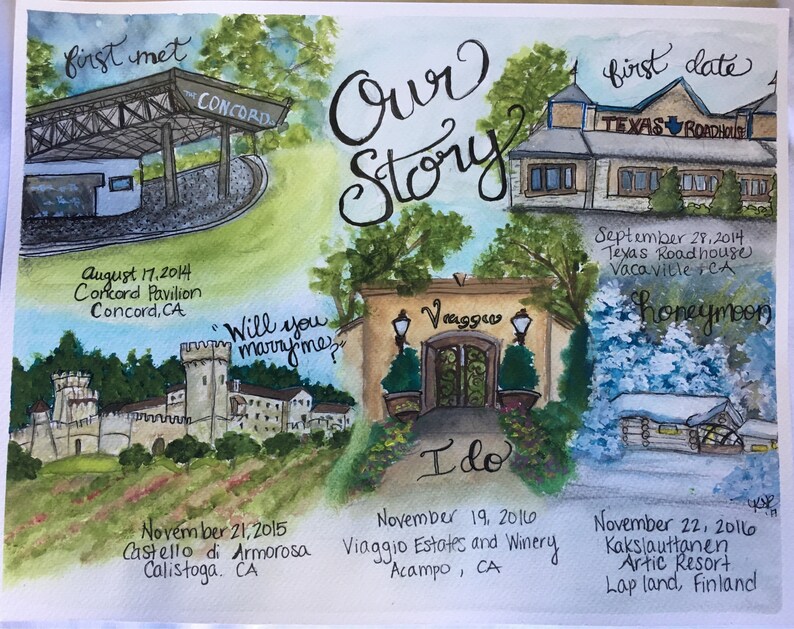 first met
THE CONCORD
August 17, 2014
Concord Pavilion
Concord, CA
Our
Story
first date
TEXAS ROADHOUSE
September 28, 2014
Texas Roadhouse
Vacaville, CA
"Will you
marry me?"
November 21, 2015
Castello di Armorosa
Calistoga. CA
Viaggio
I do
November 19, 2016
Viaggio Estates and Winery
Acampo, CA
honeymoon
November 22, 2016
Kakslauttanen
Artic Resort
Lapland, Finland